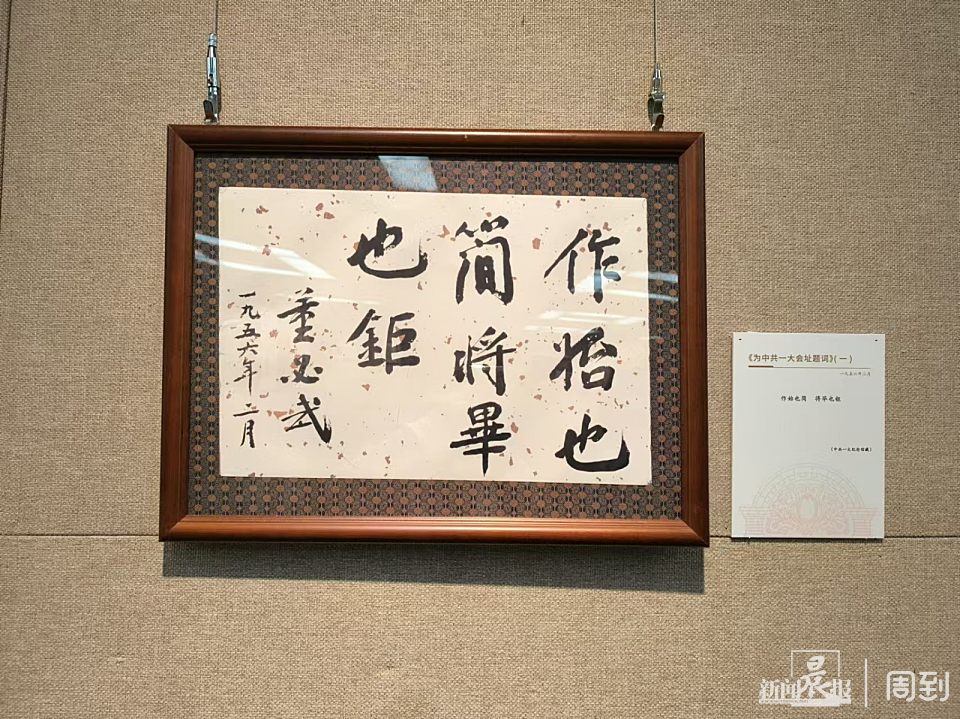 作始也
简將畢
也鉅
董必武
一九五六年二月
《为中共一大会址题词》（一）
一九五六年二月
作始也简　将毕也钜
（中共一大纪念馆藏）
新闻晨报
周到